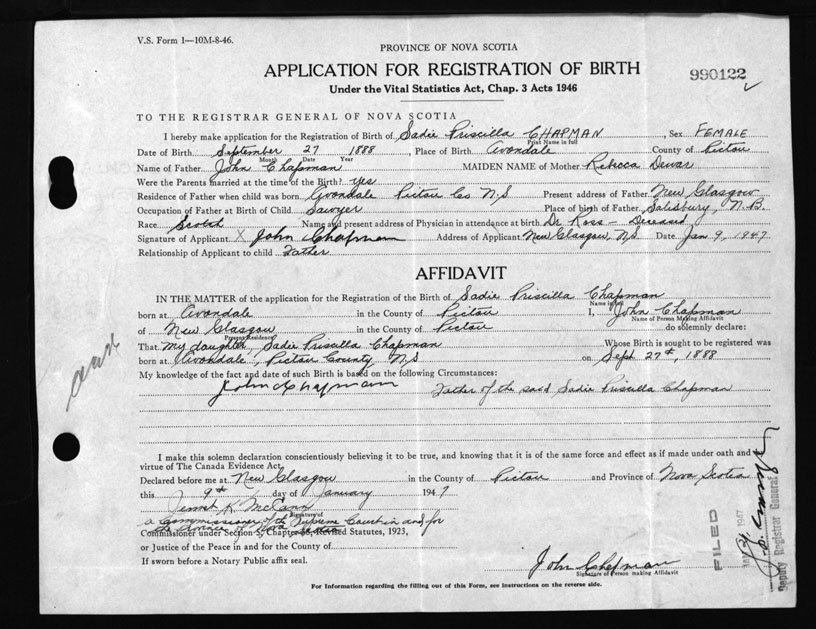 V.S. Form 1—10M-8-46.
PROVINCE OF NOVA SCOTIA
APPLICATION FOR REGISTRATION OF BIRTH
990122
Under the Vital Statistics Act, Chap. 3 Acts 1946
TO THE REGISTRAR GENERAL OF NOVA SCOTIA
I hereby make application for the Registration of Birth of Sadie Priscilla CHAPMAN, Sex FEMALE
Print Name in full
Date of Birth September 27 1888 Place of Birth Avondale County of Pictou
Month Date Year
Name of Father John Chapman MAIDEN NAME of Mother Rebecca Dewar
Were the Parents married at the time of the Birth? yes
Residence of Father when child was born Avondale Pictou Co N.S Present address of Father New Glasgow
Occupation of Father at Birth of Child Sawyer Place of birth of Father Salisbury, N.B.
Race Scotch Name and present address of Physician in attendance at birth Dr. Ross — Deceased
Signature of Applicant X John Chapman Address of Applicant New Glasgow, N.S Date Jan 9, 1947
Relationship of Applicant to child Father
AFFIDAVIT
IN THE MATTER of the application for the Registration of the Birth of Sadie Priscilla Chapman
Name in full
born at Avondale in the County of Pictou I, John Chapman
Name of Person Making Affidavit
of New Glasgow in the County of Pictou do solemnly declare:
Present Residence?
That my daughter, Sadie Priscilla Chapman Whose Birth is sought to be registered was
born at Avondale, Pictou County N.S on Sept 27th, 1888
My knowledge of the fact and date of such Birth is based on the following Circumstances:
John Chapman Father of the said Sadie Priscilla Chapman
I make this solemn declaration conscientiously believing it to be true, and knowing that it is of the same force and effect as if made under oath and
virtue of The Canada Evidence Act.
Declared before me at New Glasgow in the County of Pictou and Province of Nova Scotia
this 9th day of January 1947
K. McCann
Signature of
a Commissioner of the Supreme Court in and for
the Province of Nova Scotia
Commissioner under Section 5, Chapter 68, Revised Statutes, 1923,
or Justice of the Peace in and for the County of
If sworn before a Notary Public affix seal.
John Chapman
Signature of Person making Affidavit
For Information regarding the filling out of this Form, see instructions on the reverse side.
FILED
1947
Deputy Registrar General